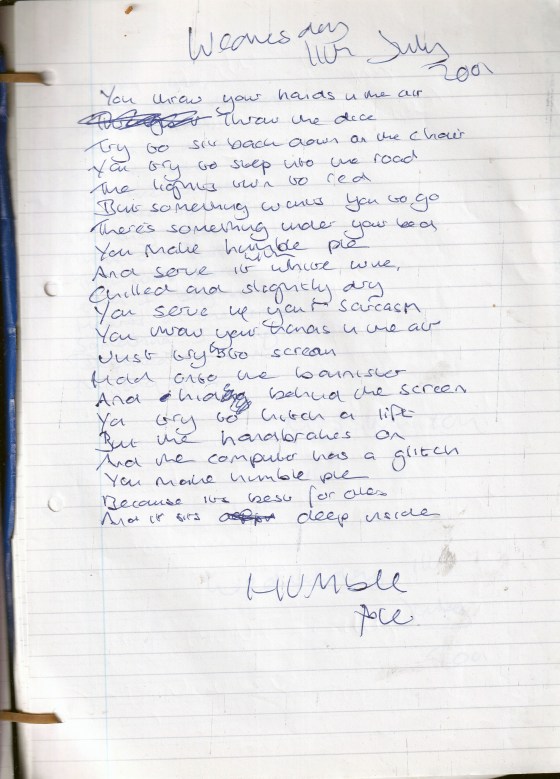 Wednesday
11th July
2001
You throw your hands in the air
Throw the dice
Try to sit back down on the chair
You try to step into the road
The lights turn to red
But something wants you to go
There's something under your bed
You make humble pie
And serve it with white wine,
Chilled and slightly dry
You serve up your sarcasm
You throw your hands in the air
Just try to scream
Hold onto the bannister
And hide behind the screen
You try to hitch a lift
But the handbrakes on
And the computer has a glitch
You make humble pie
Because its best for
And it sits deep inside
Humble
Pie